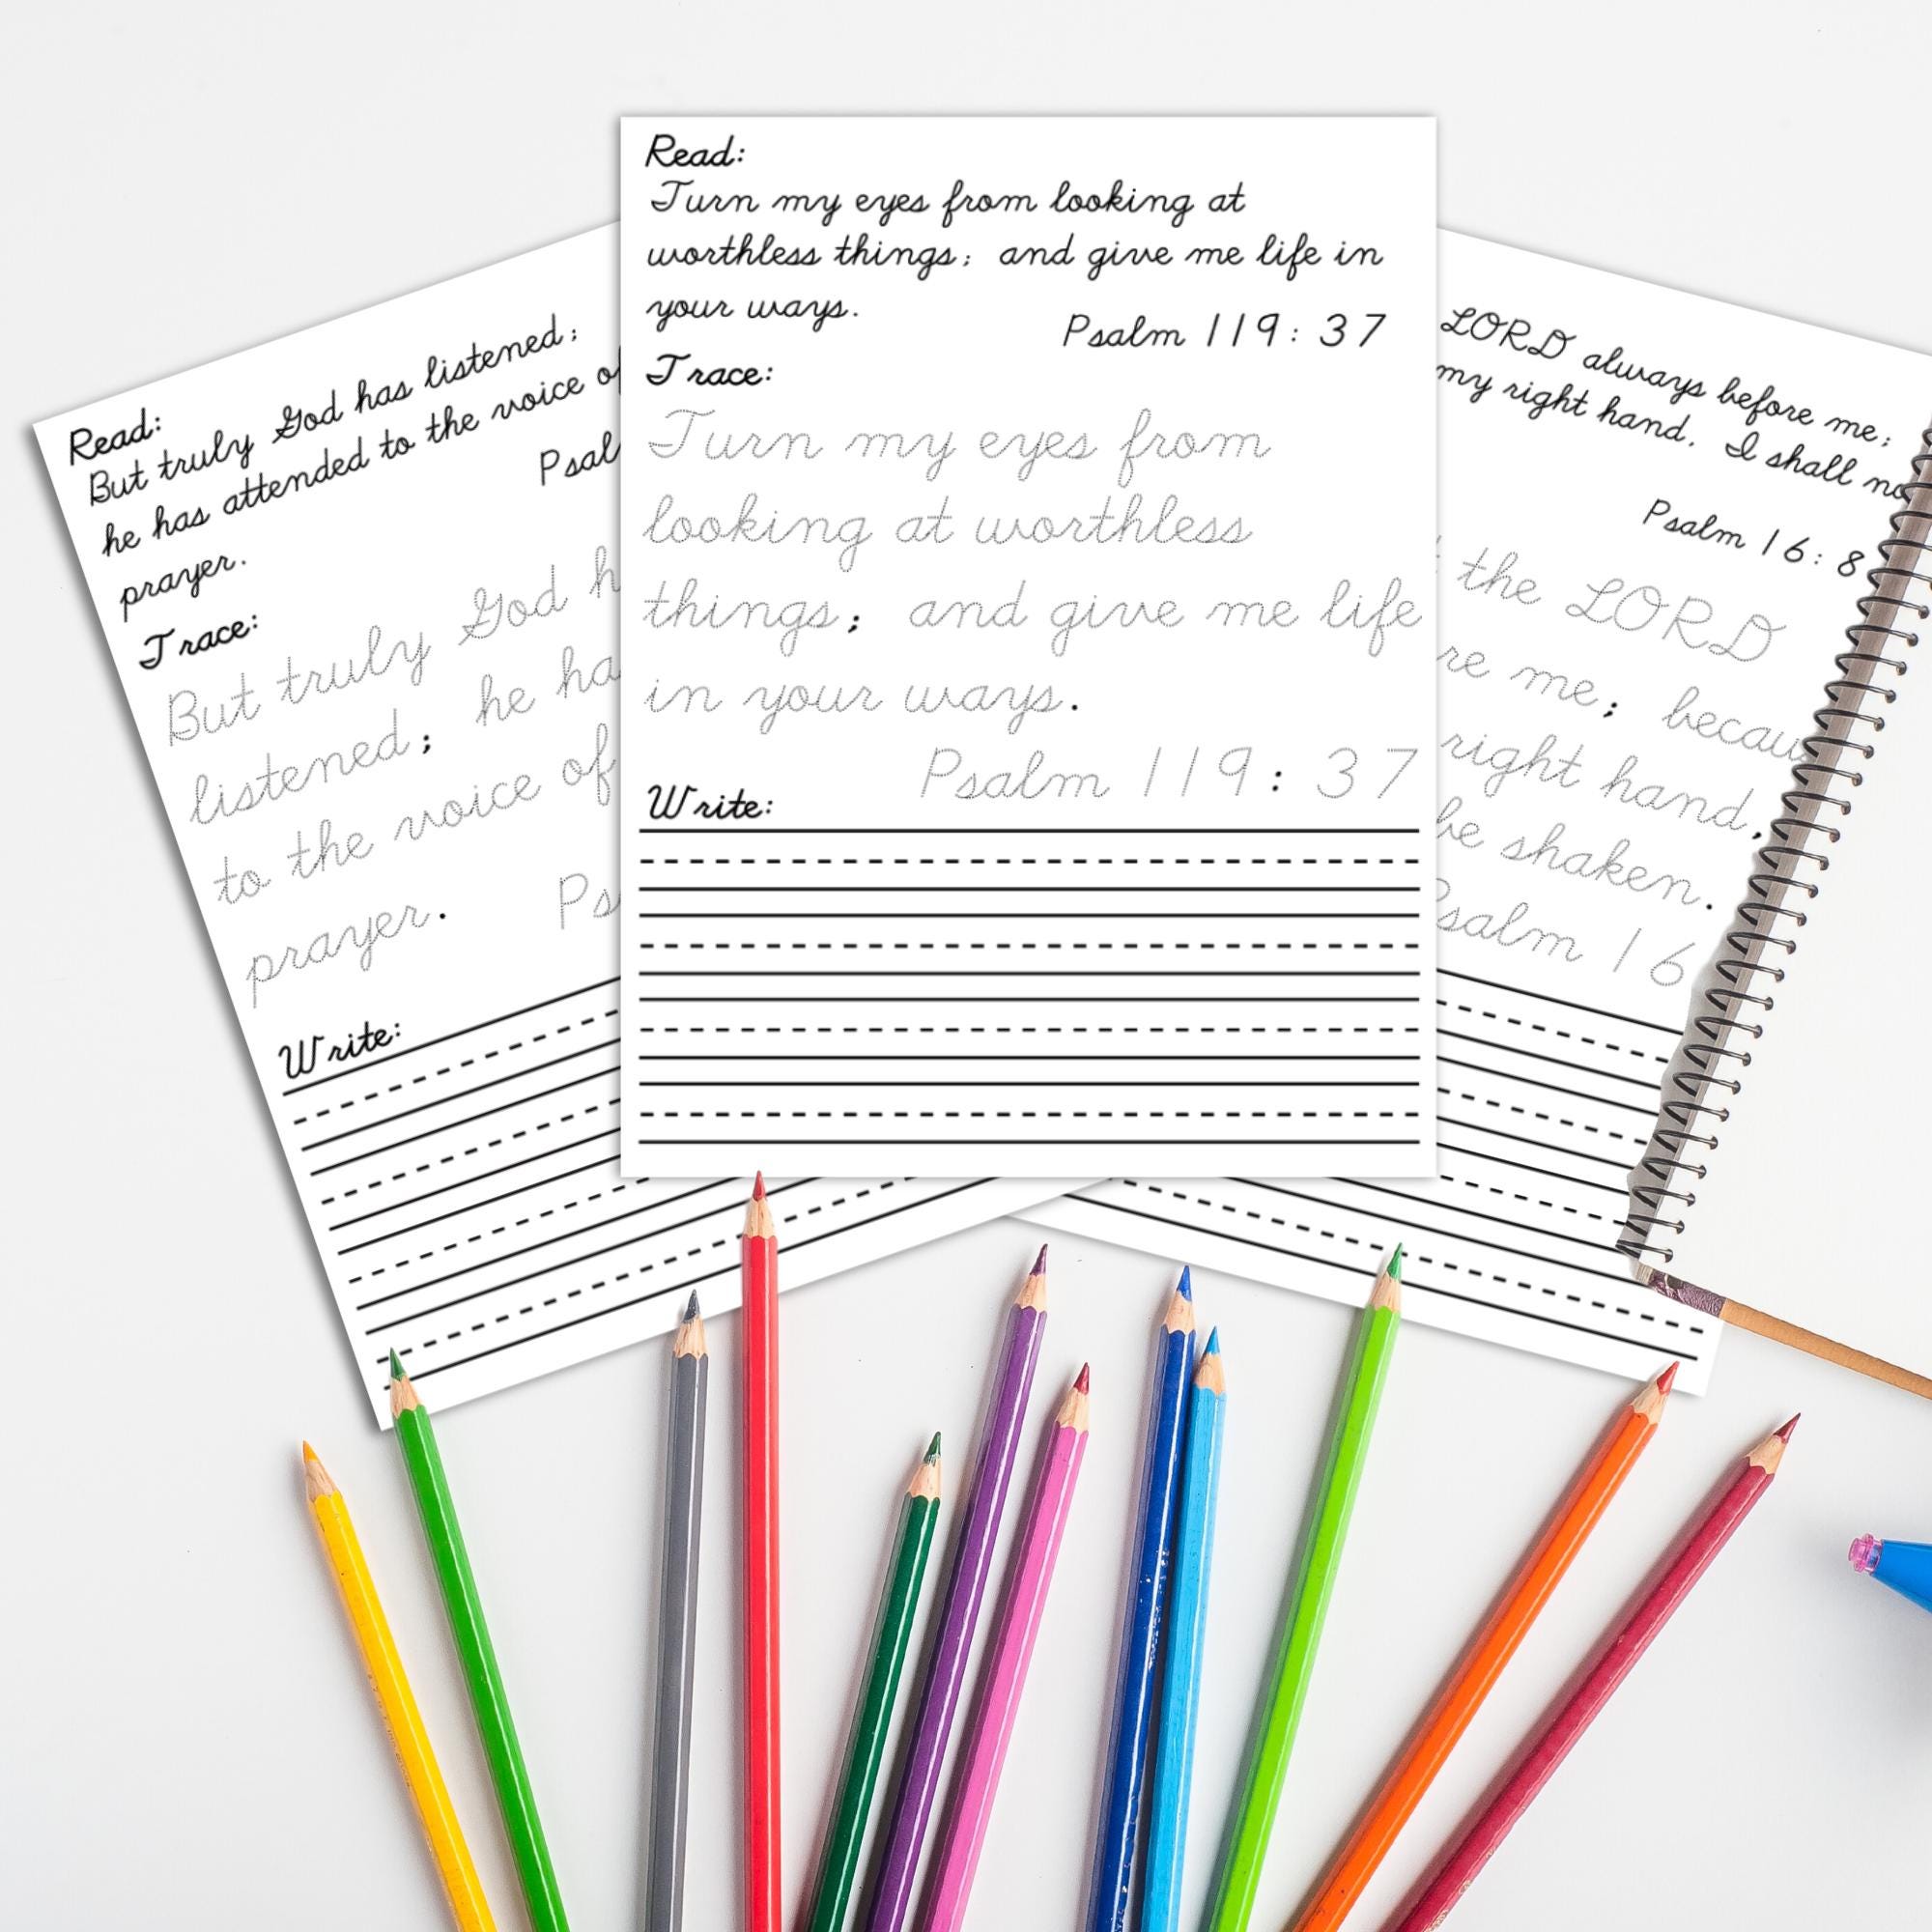 Read:
But truly God has listened;
he has attended to the voice of
prayer.
Psal
Trace:
But truly God h
listened; he ha
to the voice of
prayer. Ps
Write:
Read:
Turn my eyes from looking at
worthless things; and give me life in
your ways.
Psalm 119:37
Trace:
Turn my eyes from
looking at worthless
things; and give me life
in your ways.
Psalm 119:37
Write:
LORD always before me;
my right hand, I shall no
Psalm 16:8
the LORD
re me; becau
right hand,
be shaken.
Psalm 16